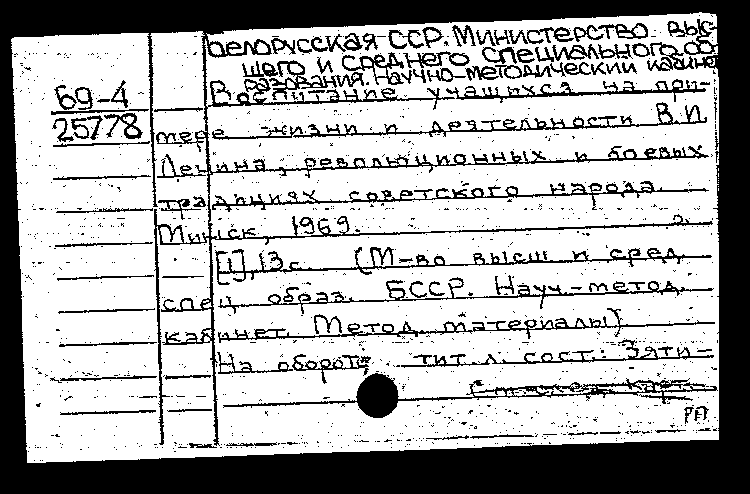 Белорусская ССР. Министерство выс-
шего и среднего специального об-
разования. Научно-методический кабинет
69-4
Воспитание учащихся на при-
25778
мере жизни и деятельности В.И.
Ленина, революционных и боевых
традициях советского народа.
Минск, 1969.
[1], 13 с. (М-во высш и сред
спец образ. БССР. Науч.-метод.
кабинет. Метод. материалы)
На обороте тит. л. сост.: Зяти-
См. след. карт.
РП